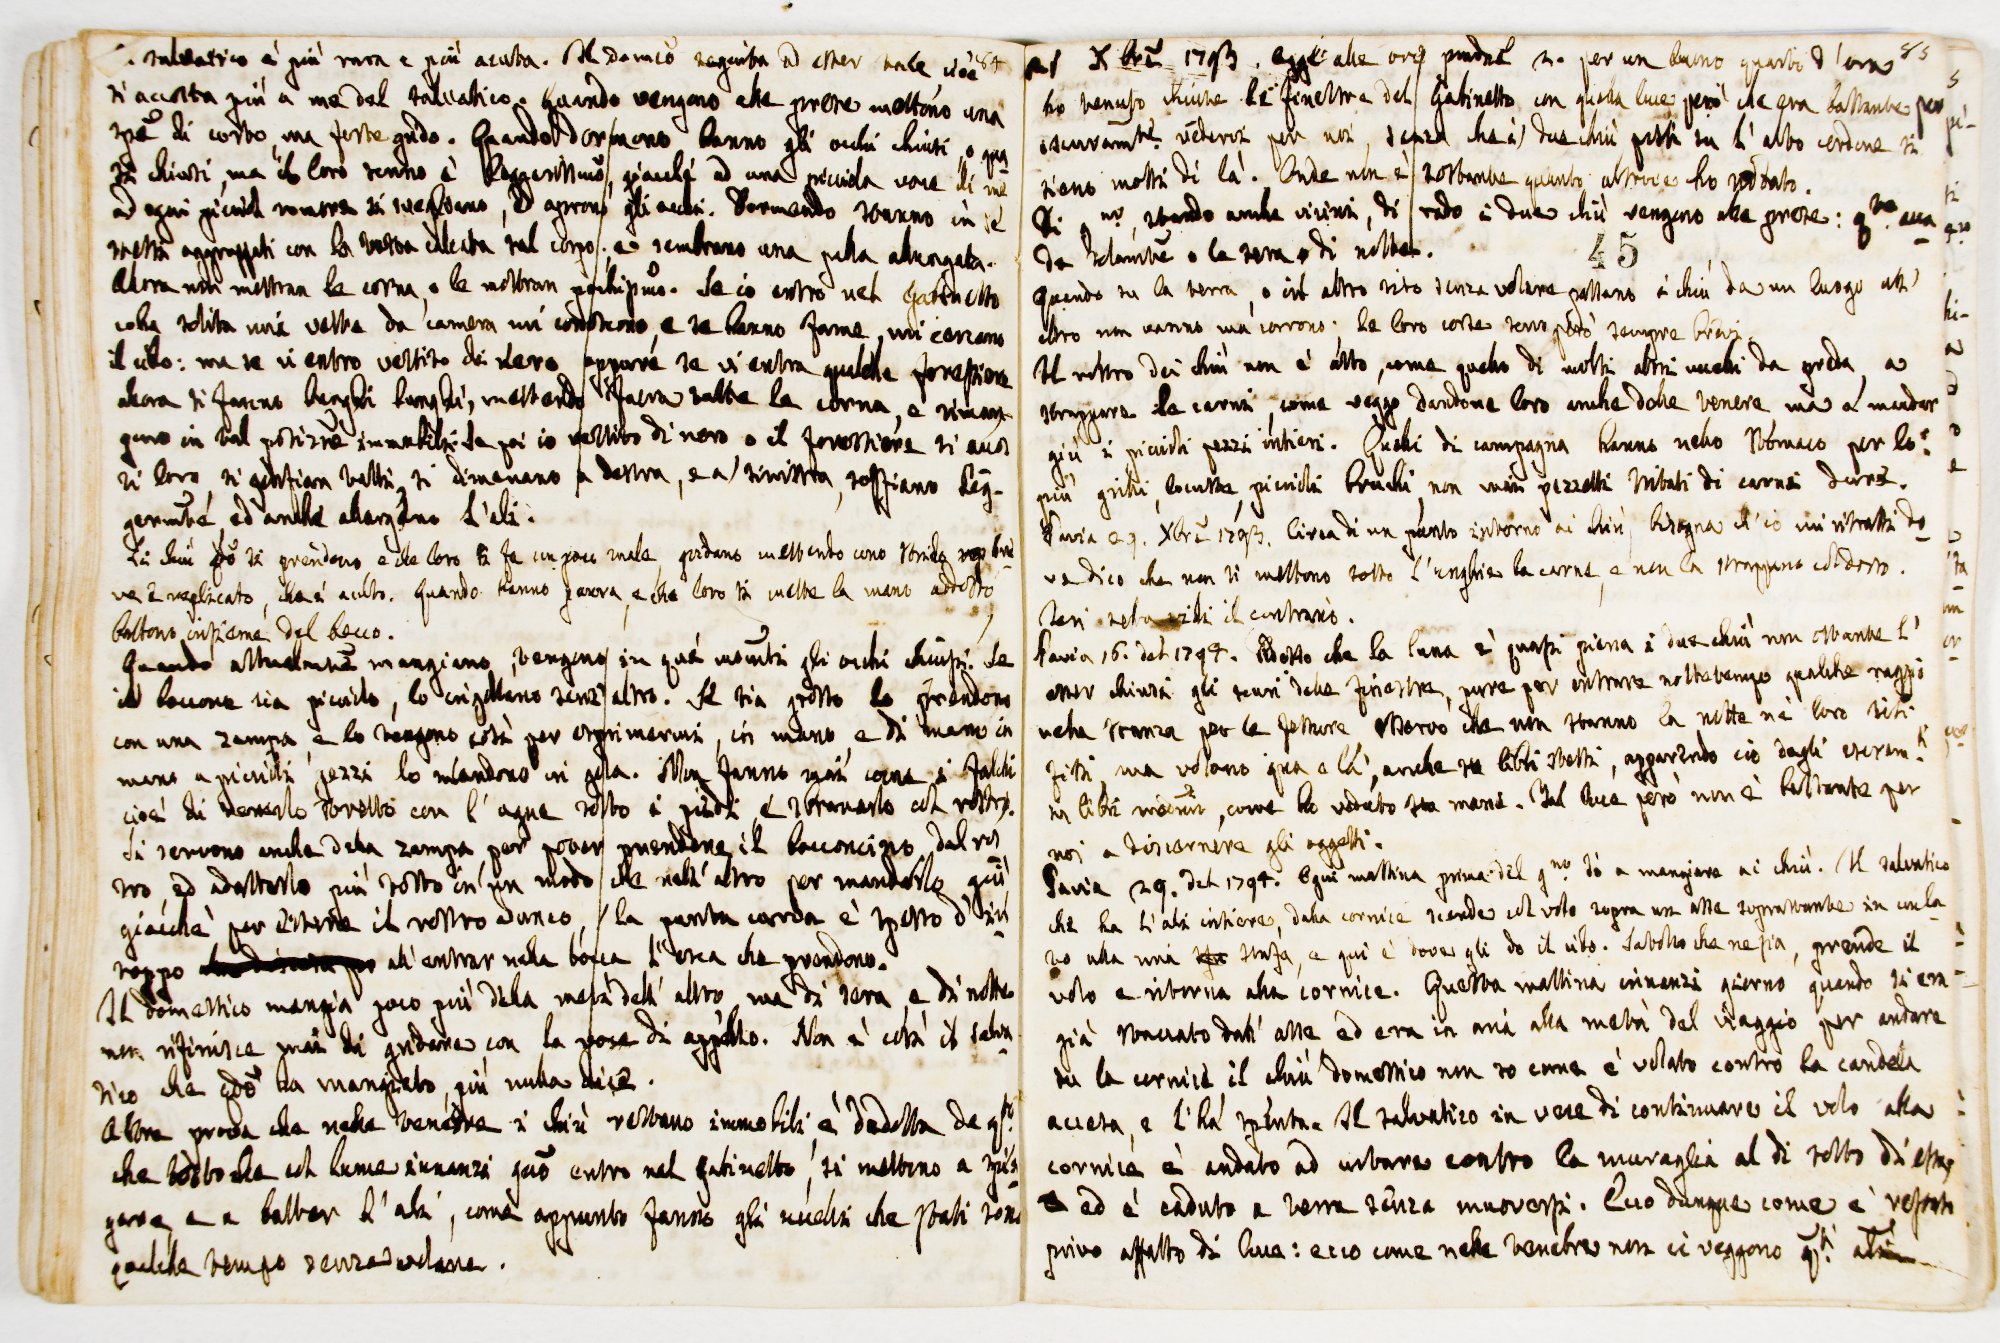 salvatico è più rara e più acuta. Il domeco seguita ad esser tale cioè 84
si accosta più a me del salvatico. Quando vengono alle prese mettono una
spē di corbo, ma forte grido. Quando dormono hanno gli occhi chiusi o pu
si chiusi, ma il loro sonno è leggerissimo, giacchè ad una piccola voce di me
ad ogni piccol romore si svegliano, ed aprono gli occhi. Dormendo stanno in se
stessi aggruppati con la testa calcata sul corpo, e sembrano una palla allungata.
Allora non mostran le corna, o le mostran pochissimo. Se io entro nel Gabinetto
colla solita mia veste da camera mi conoscono, e se hanno fame, mi cercano
il cibo: ma se vi entro vestito di nero oppure se vi entra qualche forestiere
allora si fanno lunghi lunghi, mettendo fuora tutte le corna, e riman-
gono in tal posizne immobili. Se poi io vestito di nero o il forestiere si accos
ti loro si gonfian tutti, si dimenano a destra, e a sinistra, soffiano leg-
germte, ed anche allargano l'ali.
Li chiù qdo si prendono e che loro si fa un poco male, gridano mettendo uno strido bre
ve e replicato, che è acuto. Quando hanno paura, e che loro si mette la mano addosso
battono insieme del becco.
Quando attualmte mangiano, tengono in que' momti gli occhi chiusi. Se
il boccone sia piccolo, lo ingollano senz'altro. Se sia grosso lo prendono
con una zampa e lo tengono così per esprimermi, in mano, e di mano in
mano a piccoli pezzi lo mandono in gola. Non fanno mai come i falchi
cioè di tenerlo stretto con l'ugne sotto i piedi, e sbranarlo col rostro.
Si servono anche della zampa per poter prendere il bocconcino dal ros
tro, ed adattarlo più tosto in un modo che nell'altro per mandarlo giù
giacchè per essere il rostro adunco, la punta corda è spesso d'in
toppo all'entrar nella bocca l'esca che prendono.
Il domestico mangia poco più della metà dell'altro, ma di sera e di notte
non rifinisce mai di gridare con la voce di appello. Non è così il salva
tico che qdo ha mangiato, più nulla dice.
Altra prova che nelle tenebre i chiù restano immobili è dedotta da qsto
che tostoche col lume innanzi giorno entro nel gabinetto, si mettono a spie
gare, e a batter l'ali, come appunto fanno gli uccelli che stati sono
qualche tempo senza volare.
21 Xbre 1793. Oggi alle ore 2. per un buono quarto d'ora 85
ho tenuto chiuse le finestre del Gabinetto con quella luce però che era bastante per
oscuramte vedersi per noi, senza che i due chiù posti su l'alto cordone si
sieno mossi di là. Onde non è sostante quanto altrove ho notato.
Di gno, stando anche vicini, di rado i due chiù vengono alle prese: qsto acca
de solamte o la sera o di notte.
45
Quando su la terra, o in altro sito senza volare passano i chiù da un luogo all'
altro non vanno ma corrono. Le loro corse sono però sempre brevi.
Il rostro dei chiù non è atto, come quello di molti altri uccelli da preda, a
strappare le carni, come veggo dandone loro anche delle tenere ma a mandar
giù i piccoli pezzi intieri. Quelli di campagna hanno nello stomaco per lo
più grilli, locuste, piccioli bruchi, non mai pezzetti tritati di carni dure.
Pavia 29. Xbre 1793. Circa di un punto intorno ai chiù, bisogna ch'io mi ritratti do
ve dico che non si mettono sotto l'unghie la carne, e non la strappano col rostro.
Ieri sera vidi il contrario.
Pavia 16. del 1794. Adesso che la luna è quasi piena i due chiù non ostante l'
esser chiusi gli scuri delle finestre, pure per entrare nottetempo qualche raggio
nella stanza per le fessure osservo che non stanno la notte ne' loro siti
fissi, ma volano qua e là, anche su libri stessi, apparendo ciò dagli escremti
su libri, come ho veduto sta mane. Tal luce però non è bastante per
noi a discernere gli oggetti.
Pavia 29. del 1794. Ogni mattina prima del gno dò a mangiare ai chiù. Il salvatico
che ha l'ali intiere, dalla cornice scende col volo sopra un asse soprastante in
vo alla mia stufa, e qui è dove gli do il cibo. Satollo che ne sia, prende il
volo e ritorna alla cornice. Questa mattina innanzi giorno quando si era
già staccato dall'asse ed era in aria alla metà del viaggio per andare
su la cornice il chiù domestico non so come è volato contro la candela
accesa, e l'ha spenta. Il salvatico in vece di continuare il volo alla
cornice è andato ad urtare contro la muraglia al di sotto di essa,
ed è caduto a terra senza muoversi. Ecco dunque come è restato
privo affatto di luce: ecco come nelle tenebre non ci veggono qsti